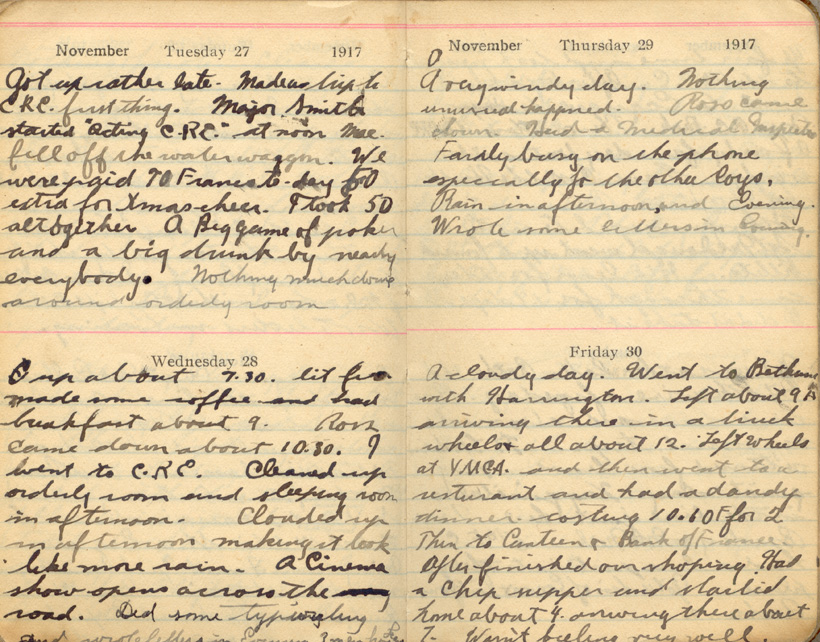 November Tuesday 27 1917
Got up rather late. Made a trip to
C.R.E. first thing. Major Smith
started "acting C.R.E." at noon Mac.
fell off the water waggon. We
were paid 70 Francs to-day
extra for Xmas cheer. I took 50
altogether A Big game of poker
and a big drunk by nearly
everybody. Nothing much doing
around orderly room
Wednesday 28
up about 7.30. lit fire
made some coffee and had
breakfast about 9. Ross
came down about 10.30. I
went to C.R.E. Cleaned up
orderly room and sleeping room
in afternoon. Clouded up
in afternoon making it look
like more rain. A Cinema
show opens across the
road. Did some typwriting
and wrote letters in
November Thursday 29 1917
A very windy day. Nothing
unusual happned. Ross came
down. Had a Medical Inspection
Fardly busy on the phone
especially for the other boys.
Rain in afternoon, and Evening.
Wrote some letters in Evening.
Friday 30
A cloudy day. Went to Bethune
with Harrington. Left about 9
arriving there in a truck
wheels & all about 12. Left wheels
at YMCA. and then went to a
resturant and had a dandy
dinner costing 10.60F for 2
Then to Canteen & Bank of France
After finished our shoping Had
a Chip supper and started
home about 4. arriving there about
7. Wasn't feeling very well